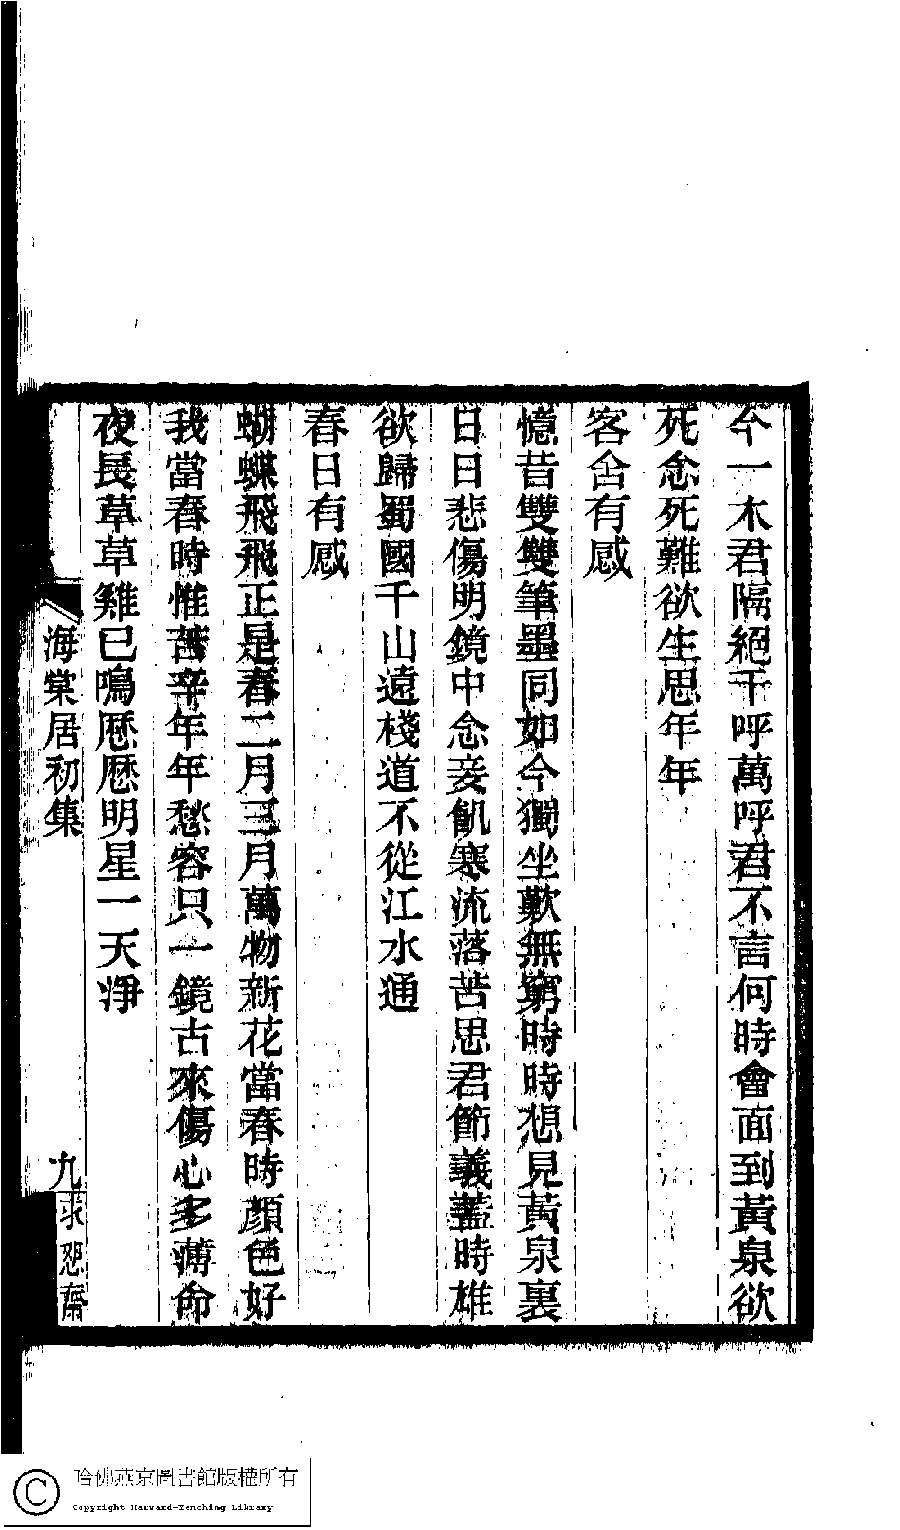 今一木君隔絕千呼萬呼君不言何時會面到黃泉欲
死念死難欲生思年年
客舍有感
憶昔雙雙筆墨同如今獨坐歎無窮時時想見黃泉裏
日日悲傷明鏡中念妾飢寒流落苦思君節義蓋時雄
欲歸蜀國千山遠棧道不從江水通
春日有感
蝴蝶飛飛正是春二月三月萬物新花當春時顏色好
我當春時惟苦辛年年愁容只一鏡古來傷心多薄命
夜長草草雞已鳴歷歷明星一天淨
海棠居初集
九
求恕齋
哈佛燕京圖書館版權所有
Copyright Harvard-Yenching Library